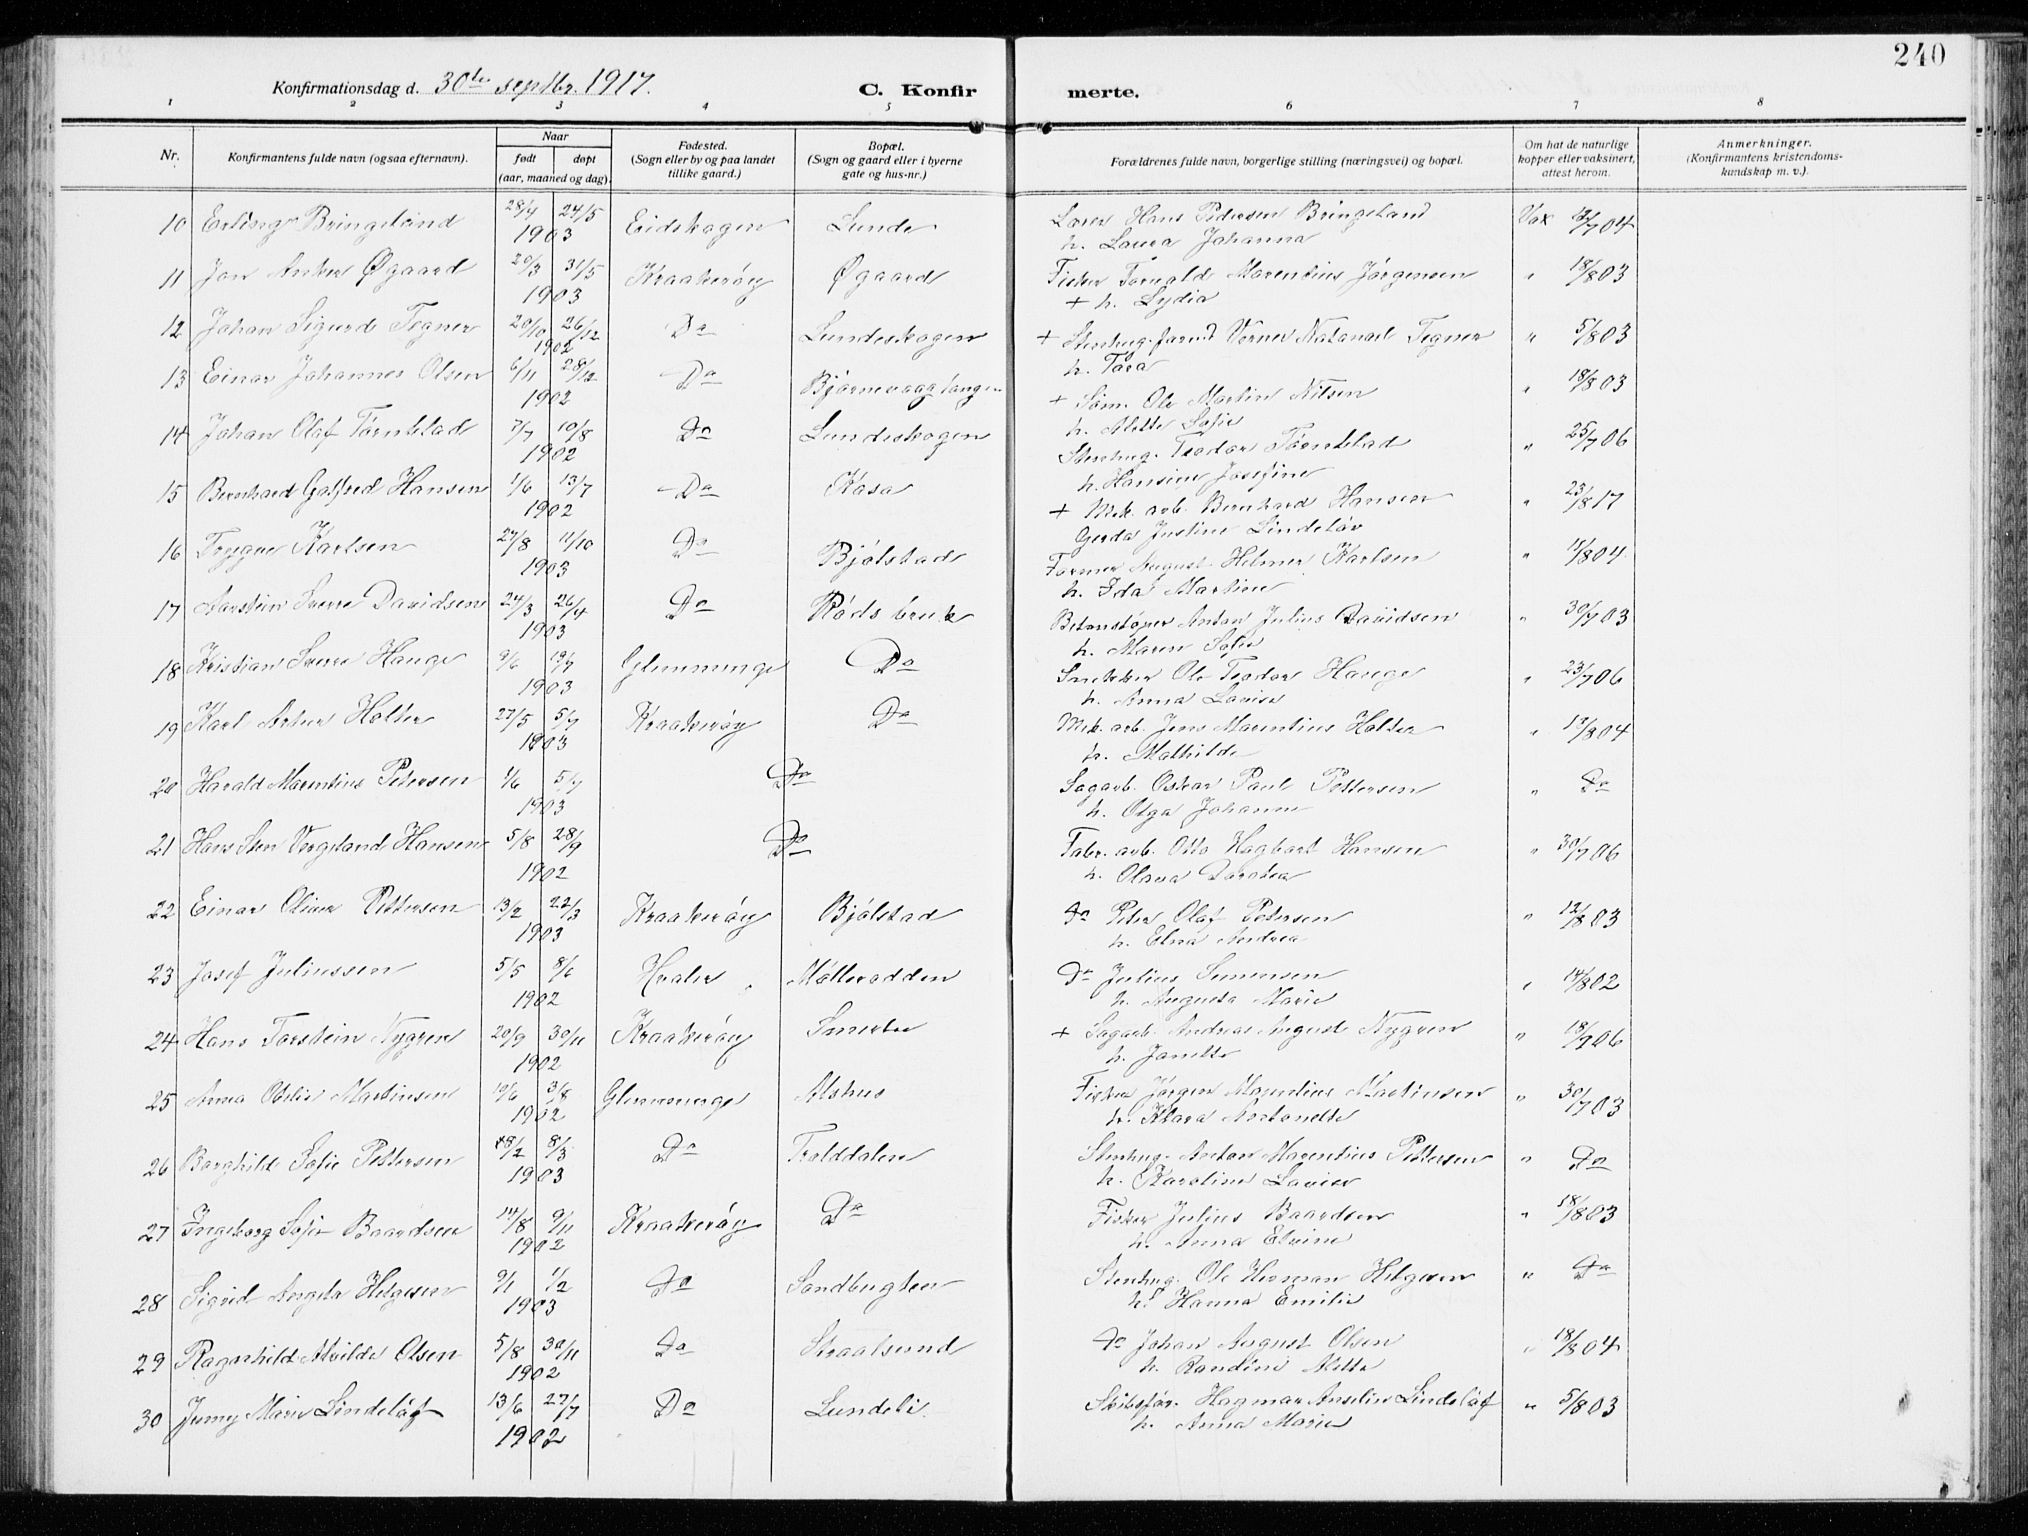 240
Konfirmationsdag d. 30te septbr. 1917. C. Konfir merte.
1 2 3 4 5 6 7 8
Nr. Konfirmantens fulde navn (ogsaa efternavn). Naar født døpt (aar, maaned og dag). Fødested. (Sogn eller by og paa landet tillike gaard.) Bopæl. (Sogn og gaard eller i byerne gate og hus-nr.) Forældrenes fulde navn, borgerlige stilling (næringsvei) og bopæl. Om hat de naturlige kopper eller vaksinert, attest herom. Anmerkninger. (Konfirmantens kristendoms-kundskap m. v.).
10 Erling Bringeland 28/4 24/5 Eidskogen Lunde Lærer Hans Pedersen Bringeland Vax 04
1903 h. Laura Johanna
11 Jon Anker Øgaard 20/3 31/5 Kraakerøy Øgaard Fisker Torvald Marentius Jørgensen " 18/8 03
1903 + h. Lydia
12 Johan Sigurd Tegner 20/10 26/12 Do Lundeskogen + Stenhug. Verner Natanael Tegner " 5/8 03
1902 h. Tora
13 Einar Johannes Olsen 6/11 28/12 Do Bjørnevaagtangen + Søm. Ole Martin Nilsen " 18/8 03
1902 h. Alette Sofie
14 Johan Olaf Tørnblad 7/7 10/8 Do Lundeskogen Stenhug. Teodor Tørnblad " 25/7 06
1902 h. Hansine Josefine
15 Bernhard Gotfred Hansen 1/6 13/7 Do Kasa + Mek. arb. Bernhard Hansen " 23/8 17
1902 Gerda Justine Lindeløv
16 Trygve Karlsen 27/8 11/10 Do Bjølstad Former August Hilmer Karlsen " 11/8 04
1903 h. Ida Martine
17 Aarstein Sverre Davidsen 24/3 26/4 Do Røds bruk Betonstøper Anton Julius Davidsen " 30/7 03
1903 h. Maren Sofie
18 Kristian Sverre Hauge 9/6 19/7 Glemminge Do Snekker Ole Teodor Hauge " 23/7 06
1903 h. Anna Lovise
19 Karl Artur Holter 27/5 5/7 Kraakerøy Do Mek. arb. Jens Marentius Holter " 17/8 04
1903 h. Mathilde
20 Harald Marentius Petersen 1/6 5/7 Do Sagarb. Oskar Paul Pettersen " Do
1903 h. Olga Johanne
21 Hans Sten Vergeland Hansen 5/8 28/9 Do Fabr. arb. Otto Hagbart Hansen " 30/7 06
1902 h. Olava Dorotea
22 Einar Oliver Pettersen 13/2 22/3 Kraakerøy Bjølstad Do Peter Olaf Petersen " 12/8 03
1903 h. Elna Andrea
23 Josef Juliussen 5/5 8/6 Hvaler Mølleodden Do Julius Simensen " 14/8 02
1902 h. Augusta Marie
24 Hans Torstein Nygren 20/9 30/11 Kraakerøy Smertu + Sagarb. Andreas August Nygren " 18/7 06
1902 h. Janette
25 Anna Otelie Martinsen 10/6 3/8 Glemminge Alshus Fisker Jørgen Marentius Martinsen " 30/7 03
1902 h. Klara Antonette
26 Borghild Sofie Pettersen 28/2 8/3 Do Trolddalen Stenhug. Anton Marentius Pettersen " Do
1903 h. Karoline Lovise
27 Ingeborg Sofie Baardsen 14/8 9/11 Kraakerøy Do Fisker Julius Baardsen " 18/8 03
1902 h. Anna Elvine
28 Sigrid Angela Helgesen 9/1 1/2 Do Sandbugten Stenhug. Ole Herman Helgesen " Do
1903 h. Hanna Emilie
29 Ragnhild Alvilde Olsen 5/8 30/11 Do Straalsund Do Johan August Olsen " 18/8 04
1902 h. Randine Mette
30 Jenny Marie Lindeløf 13/6 27/7 Do Lundeli Skibsfør. Hagmar Anselin Lindeløf " 5/8 03
1902 h. Anna Marie